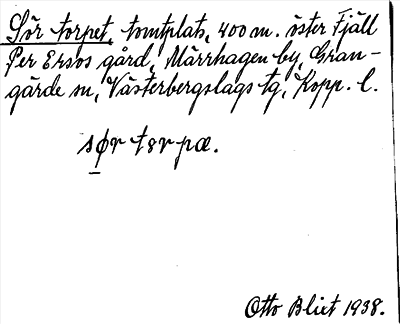 Sör torpet, tomtplats, 400 m. öster Fjäll
Per Ersos gård, Märrhagen by, Gran-
gärde sn, Västerbergslags tg, Kopp. l.
sør tɵrpæ.
Otto Blixt 1938.